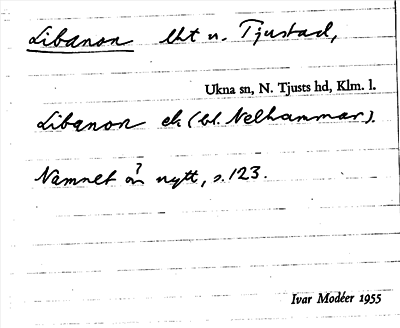 Libanon lht u. Tjustad,
Ukna sn, N. Tjusts hd, Klm. l.
Libanon ek (bl. Nelhammar).
Namnet är? nytt, s. 123.
Ivar Modéer 1955